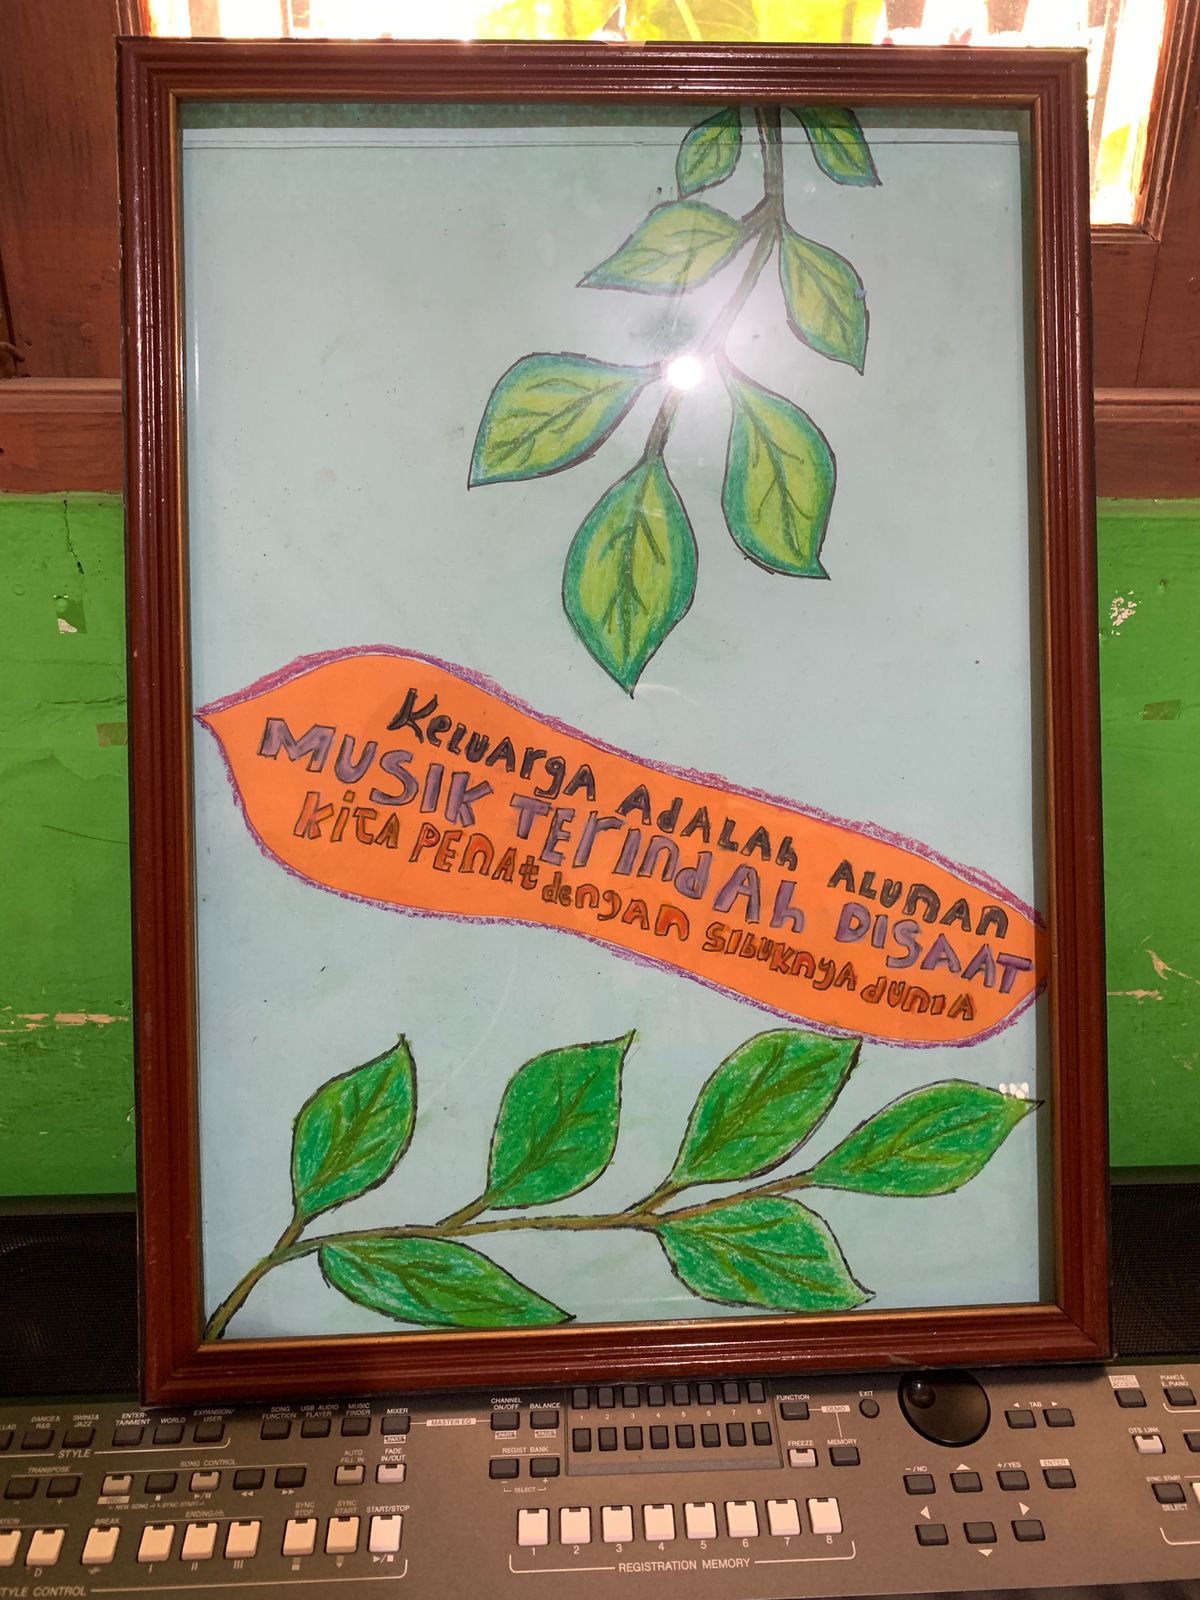 Keluarga Adalah Alunan
MUSIK TErindAh DISAAT
Kita PENAt dengan SIbuknya dunia
CHANNEL ON/OFF
BALANCE
FUNCTION
EXIT
DANCE& R&B
SWING& JAZZ
ENTER-TAINMENT
WORLD
EXPANSION/ USER
SONG FUNCTION
USB AUDIO PLAYER
MUSIC FINDER
MIXER
PART
MASTER EQ
PART
PAGE
1 2 3 4 5 6 7 8
DEMO
TAB
PIANO& E.PIANO
STYLE
AUTO FILL IN
FADE IN/OUT
REGIST BANK
FREEZE
MEMORY
OTS LINK
TRANSPOSE
SONG CONTROL
- +
- +
SELECT
-/NO
+/YES
ENTER
NEW SONG
SYNC START
BREAK
ENDING/rit.
SYNC STOP
SYNC START
START/STOP
SYNC START
SELECT
D
I II III
1 2 3 4 5 6 7 8
REGISTRATION MEMORY
STYLE CONTROL